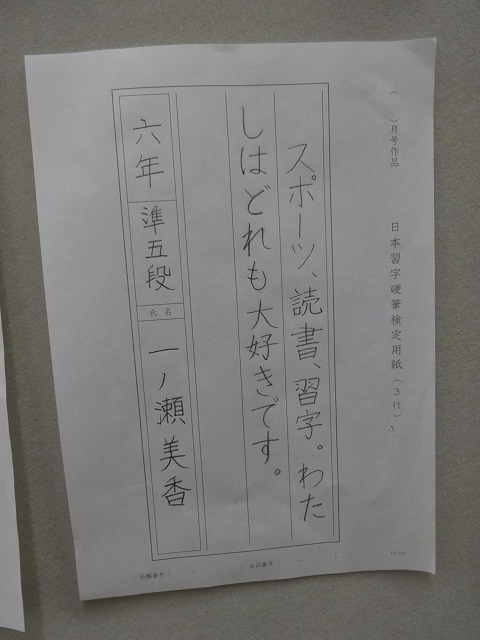 (　　)月号作品
日本習字硬筆検定用紙(3行)
スポーツ、読書、習字。わた
しはどれも大好きです。
六年 準五段 氏名 一ノ瀬美香
出品番号(　-　)